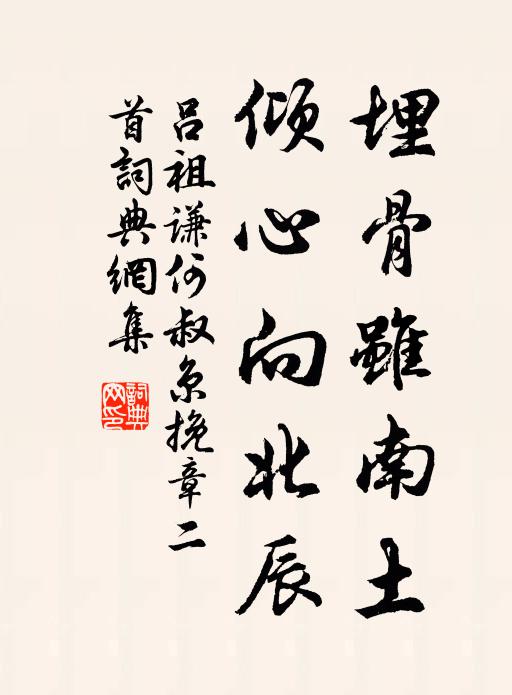 埋骨雖南土
傾心向北辰
呂祖謙何叔京挽章二
首詞典網集
詞典
网印